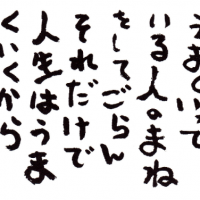 うまくいって
いる人のまね
をしてごらん
それだけで
人生はうま
くいくから